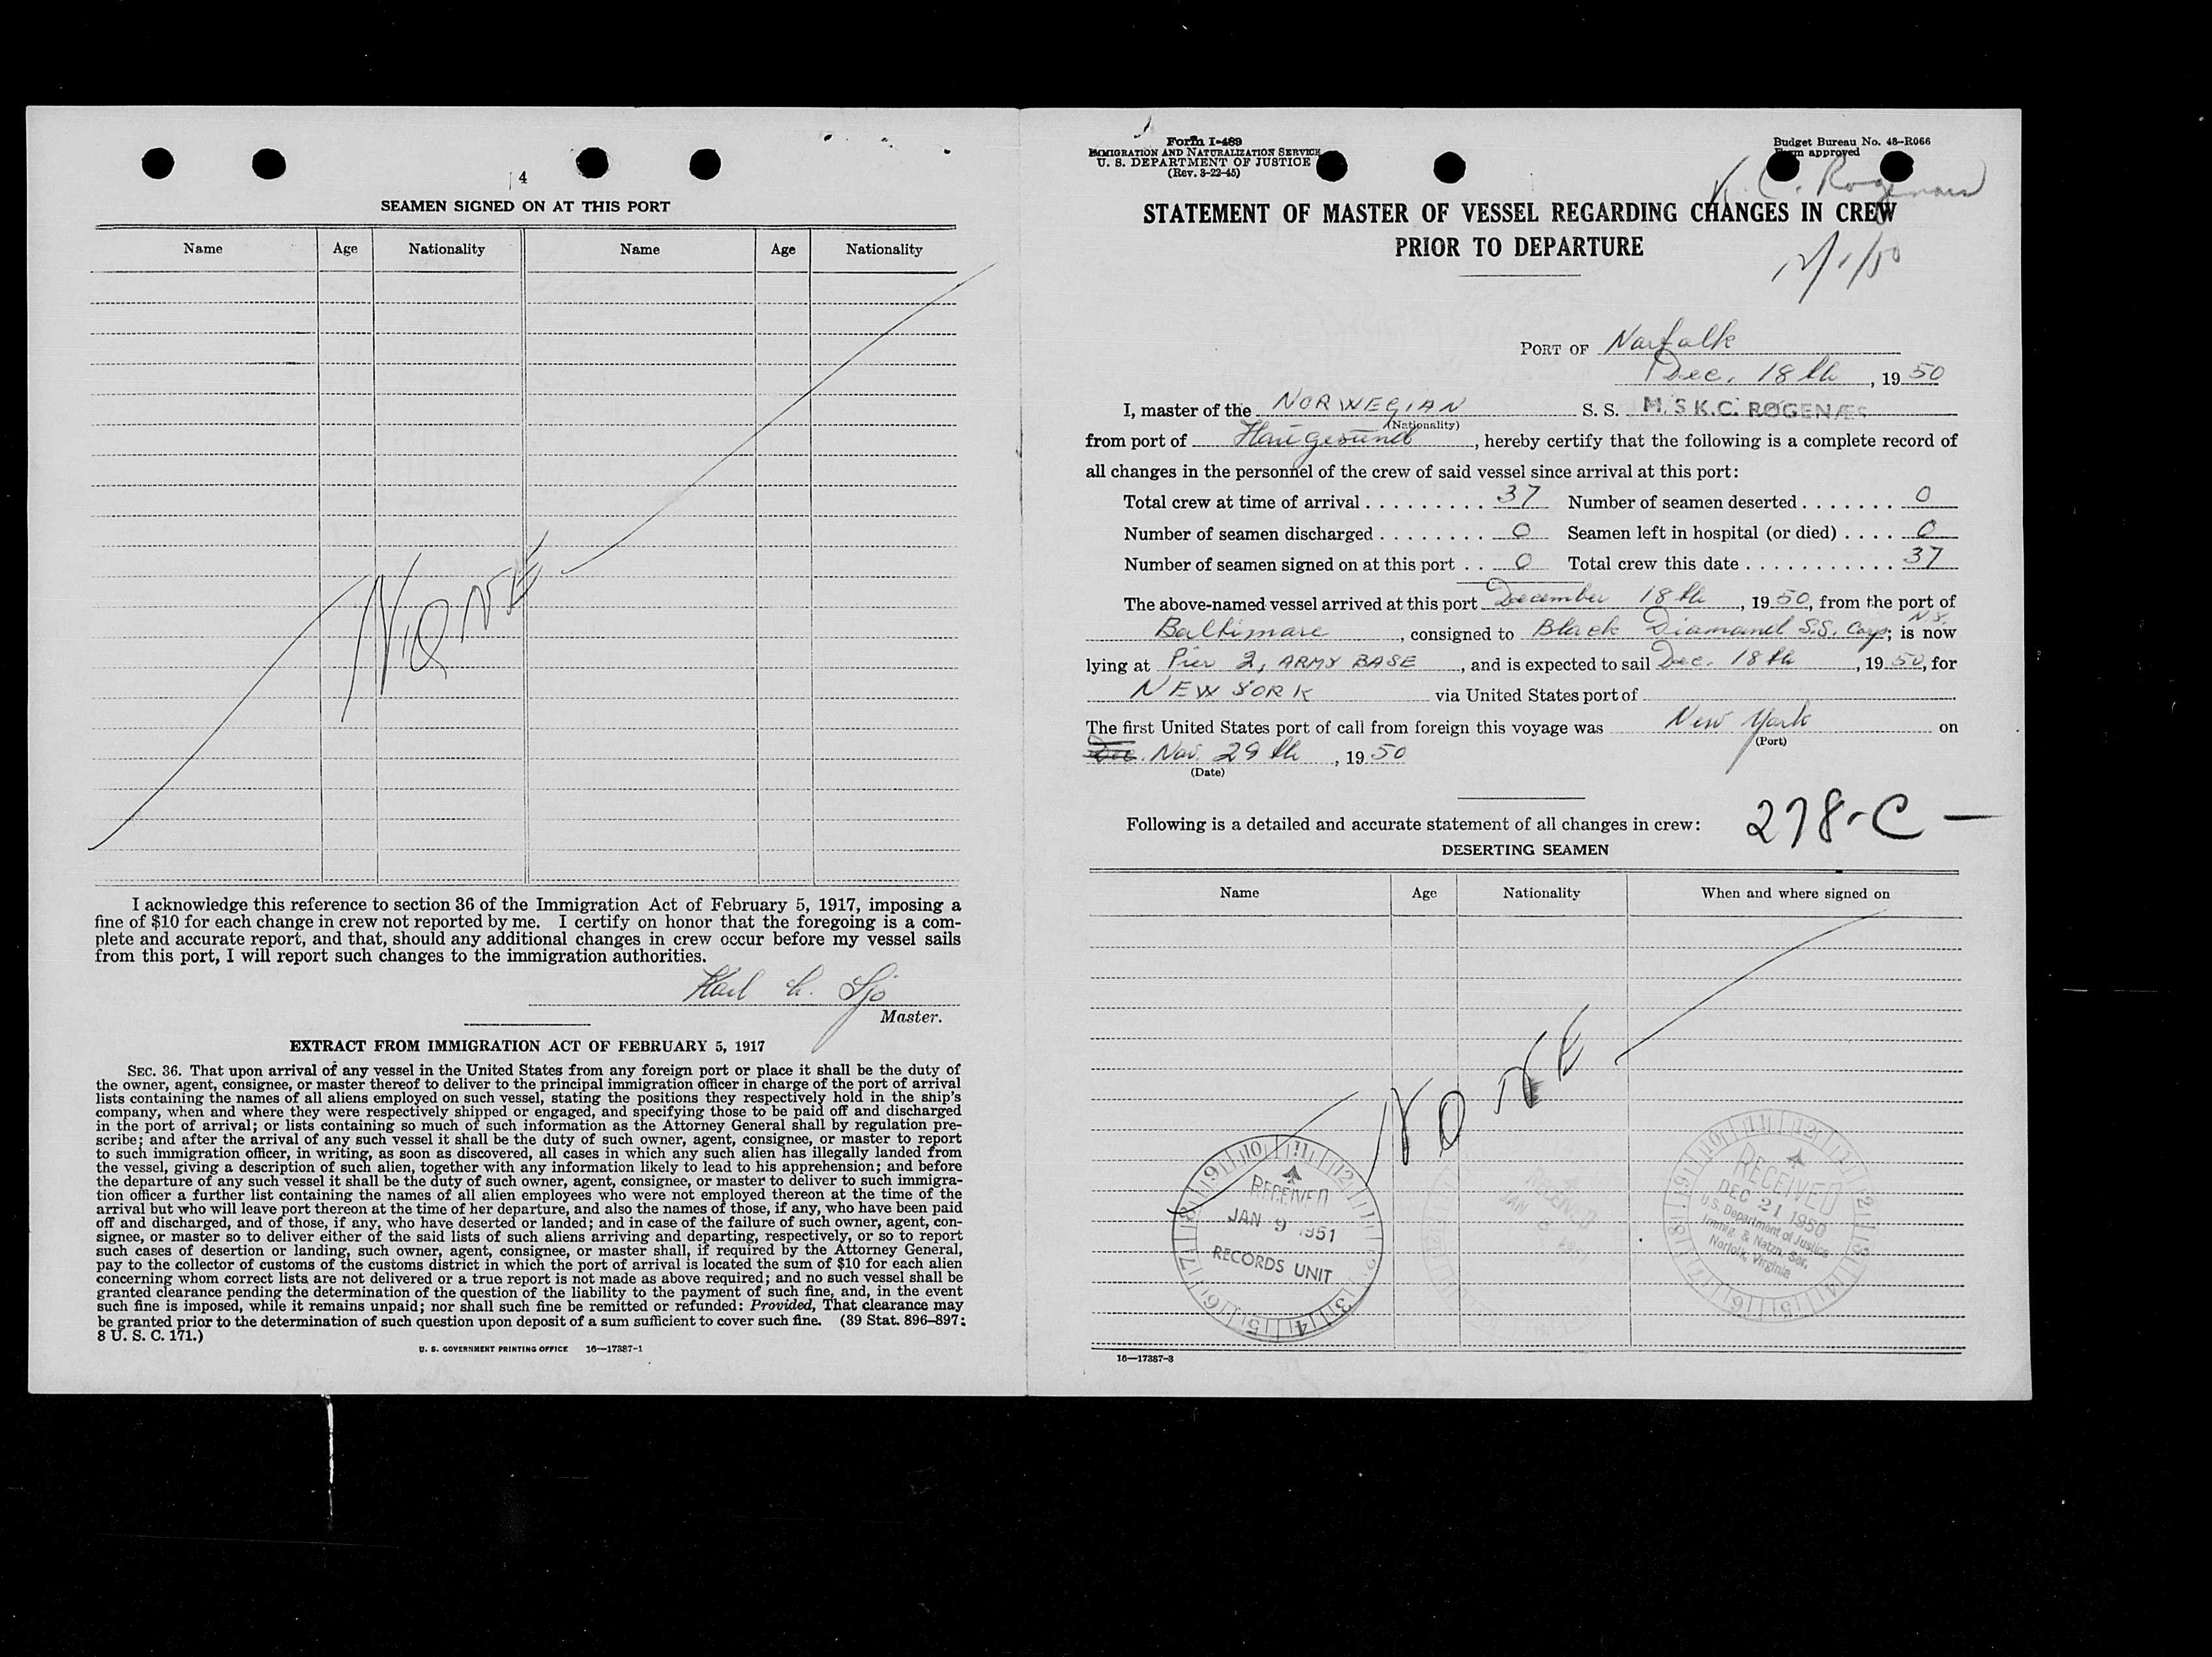 4
SEAMEN SIGNED ON AT THIS PORT
Name Age Nationality Name Age Nationality
NONE
I acknowledge this reference to section 36 of the Immigration Act of February 5, 1917, imposing a
fine of $10 for each change in crew not reported by me. I certify on honor that the foregoing is a com-
plete and accurate report, and that, should any additional changes in crew occur before my vessel sails
from this port, I will report such changes to the immigration authorities.
Karl
Master.
EXTRACT FROM IMMIGRATION ACT OF FEBRUARY 5, 1917
SEC. 36. That upon arrival of any vessel in the United States from any foreign port or place it shall be the duty of
the owner, agent, consignee, or master thereof to deliver to the principal immigration officer in charge of the port of arrival
lists containing the names of all aliens employed on such vessel, stating the positions they respectively hold in the ship's
company, when and where they were respectively shipped or engaged, and specifying those to be paid off and discharged
in the port of arrival; or lists containing so much of such information as the Attorney General shall by regulation pre-
scribe; and after the arrival of any such vessel it shall be the duty of such owner, agent, consignee, or master to report
to such immigration officer, in writing, as soon as discovered, all cases in which any such alien has illegally landed from
the vessel, giving a description of such alien, together with any information likely to lead to his apprehension; and before
the departure of any such vessel it shall be the duty of such owner, agent, consignee, or master to deliver to such immigra-
tion officer a further list containing the names of all alien employees who were not employed thereon at the time of the
arrival but who will leave port thereon at the time of her departure, and also the names of those, if any, who have been paid
off and discharged, and of those, if any, who have deserted or landed; and in case of the failure of such owner, agent, con-
signee, or master so to deliver either of the said lists of such aliens arriving and departing, respectively, or so to report
such cases of desertion or landing, such owner, agent, consignee, or master shall, if required by the Attorney General,
pay to the collector of customs of the customs district in which the port of arrival is located the sum of $10 for each alien
concerning whom correct lists are not delivered or a true report is not made as above required; and no such vessel shall be
granted clearance pending the determination of the question of the liability to the payment of such fine, and, in the event
such fine is imposed, while it remains unpaid; nor shall such fine be remitted or refunded: Provided, That clearance may
be granted prior to the determination of such question upon deposit of a sum sufficient to cover such fine. (39 Stat. 896–897;
8 U. S. C. 171.)
U. S. GOVERNMENT PRINTING OFFICE 16—17387-1
Form I-489
IMMIGRATION AND NATURALIZATION SERVICE
U. S. DEPARTMENT OF JUSTICE
(Rev. 3-22-45)
Budget Bureau No. 43-R066
Form approved
K. C. Rogenaes
STATEMENT OF MASTER OF VESSEL REGARDING CHANGES IN CREW
PRIOR TO DEPARTURE
12/1/50
PORT OF Norfolk
Dec. 18th, 1950
I, master of the NORWEGIAN S. S. M.S K.C. ROGENÆS
(Nationality)
from port of Haugesund, hereby certify that the following is a complete record of
all changes in the personnel of the crew of said vessel since arrival at this port:
Total crew at time of arrival . . . . . . . . . 37 Number of seamen deserted . . . . . . . 0
Number of seamen discharged . . . . . . . . 0 Seamen left in hospital (or died) . . . . 0
Number of seamen signed on at this port . . 0 Total crew this date . . . . . . . . . . . . 37
The above-named vessel arrived at this port December 18th, 1950, from the port of
Baltimore, consigned to Black Diamond S.S. Corp. N.Y.; is now
lying at Pier 2, ARMY BASE, and is expected to sail Dec. 18th, 1950, for
NEW YORK via United States port of
The first United States port of call from foreign this voyage was New York on
(Port)
Dec. Nov. 29th, 1950
(Date)
278-C —
Following is a detailed and accurate statement of all changes in crew:
DESERTING SEAMEN
Name Age Nationality When and where signed on
NONE
RECEIVED
JAN 9 1951
RECORDS UNIT
RECEIVED
DEC 21 1950
U.S. Department of Justice
Immig. & Natzn. Ser.
Norfolk, Virginia
16—17387-3